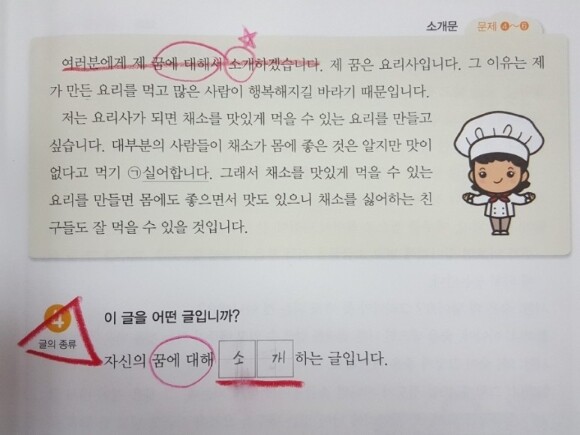 소개문 문제 4~6
여러분에게 제 꿈에 대해서 소개하겠습니다. 제 꿈은 요리사입니다. 그 이유는 제
가 만든 요리를 먹고 많은 사람이 행복해지길 바라기 때문입니다.
저는 요리사가 되면 채소를 맛있게 먹을 수 있는 요리를 만들고
싶습니다. 대부분의 사람들이 채소가 몸에 좋은 것은 알지만 맛이
없다고 먹기 ㉠실어합니다. 그래서 채소를 맛있게 먹을 수 있는
요리를 만들면 몸에도 좋으면서 맛도 있으니 채소를 싫어하는 친
구들도 잘 먹을 수 있을 것입니다.
4
글의 종류
이 글을 어떤 글입니까?
자신의 꿈에 대해 소 개 하는 글입니다.